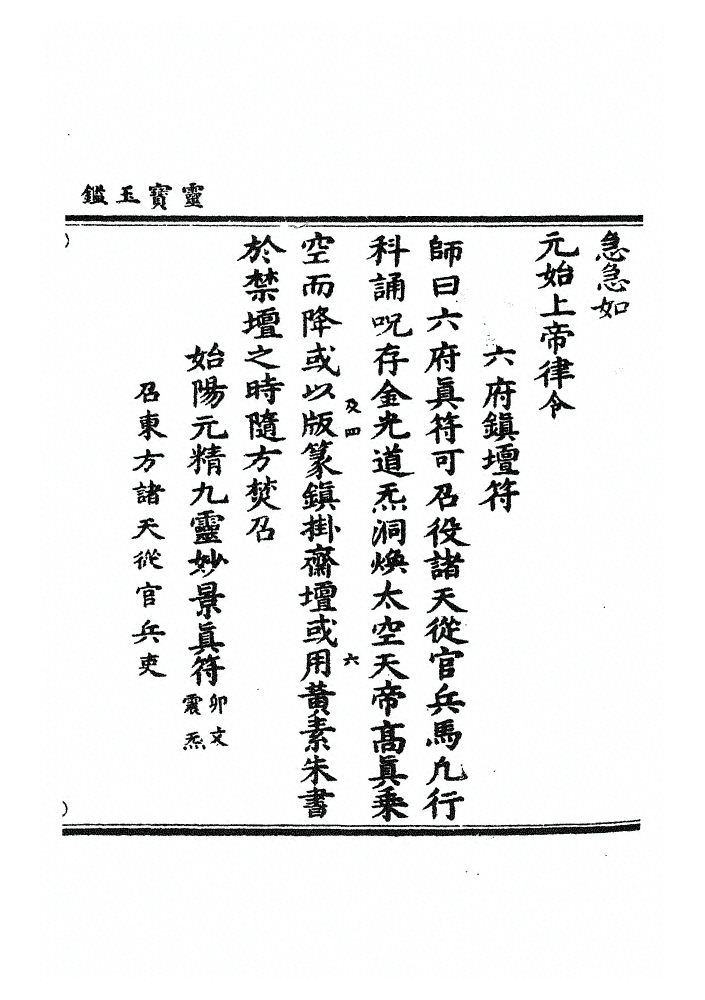 靈寶玉鑑
急急如
元始上帝律令
六府鎮壇符
師曰六府眞符可召役諸天從官兵馬凢行
科誦呪存金光道炁洞煥太空天帝髙眞乗
及四
六
空而降或以版篆鎮掛齋壇或用黄素朱書
於禁壇之時隨方焚召
始陽元精九靈妙景眞符
卯文
震炁
召東方諸天從官兵吏